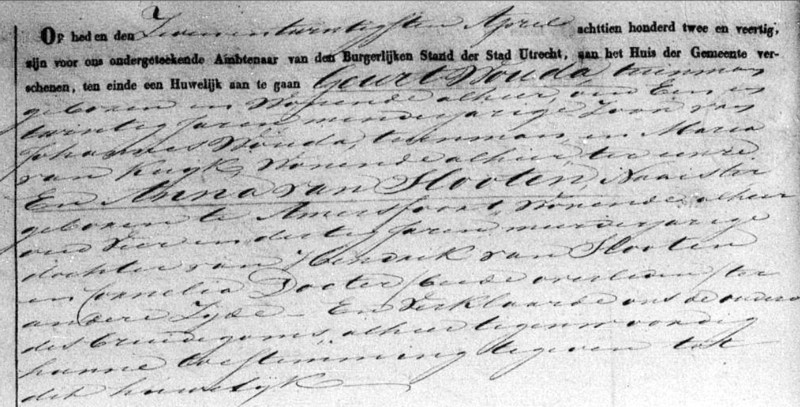 Op heden den Zevenentwintigsten April achttien honderd twee en veertig,
zijn voor ons ondergeteekende Ambtenaar van den Burgerlijken Stand der Stad Utrecht, aan het Huis der Gemeente ver-
schenen, ten einde een Huwelijk aan te gaan Geurt Wouda, tuinman
geboren en Wonende alhier, oud Een en
twintig Jaren minderjarige Zoon van
Johannes Wouda, tuinman, en Maria
van Kuyk, Wonende alhier, ter eenre
En Anna van Slooten, Naaister
geboren te Amersfoort, Wonende alhier
oud Vier en dertig Jaren meerderjarige
dochter van Hendrik van Slooten
en Cornelia Dooter (beide overleden) ter
andere Zyde – En verklaarde ons de ouders
des bruidegoms, alhier tegenwoordig
hunne toestemming te geven tot
dit huwelyk